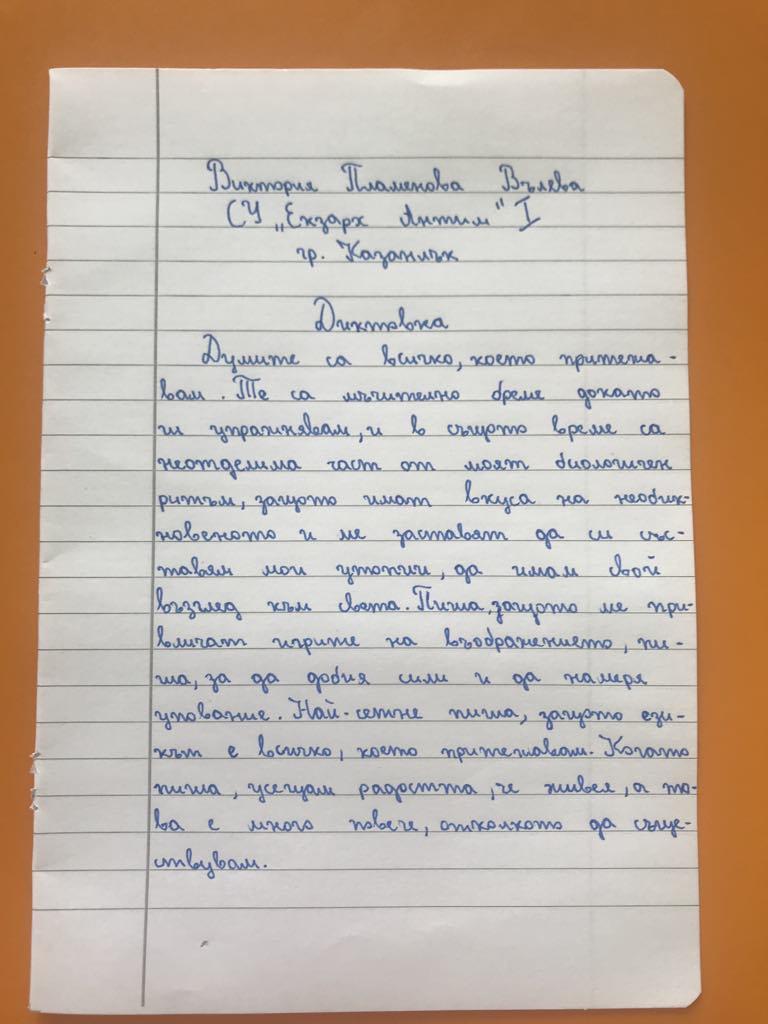 Виктория Пламенова Вълева
СУ „Екзарх Антим" I
гр. Казанлък
Диктовка
Думите са всичко, което притежа-
вам. Те са мъчително бреме докато
ги упражнявам, и в същото време са
неотделима част от моят биологичен
ритъм, защото имат вкуса на необик-
новеното и ме заставят да си със-
тавям мои утопии, да имам свой
възглед към света. Пиша, защото ме при-
вличат игрите на въображението, пи-
ша, за да добия сили и да намеря
упование. Най-сетне пиша, защото ези-
кът е всичко, което притежавам. Когато
пиша, усещам радостта, че живея, а то-
ва е много повече, отколкото да съще-
ствувам.